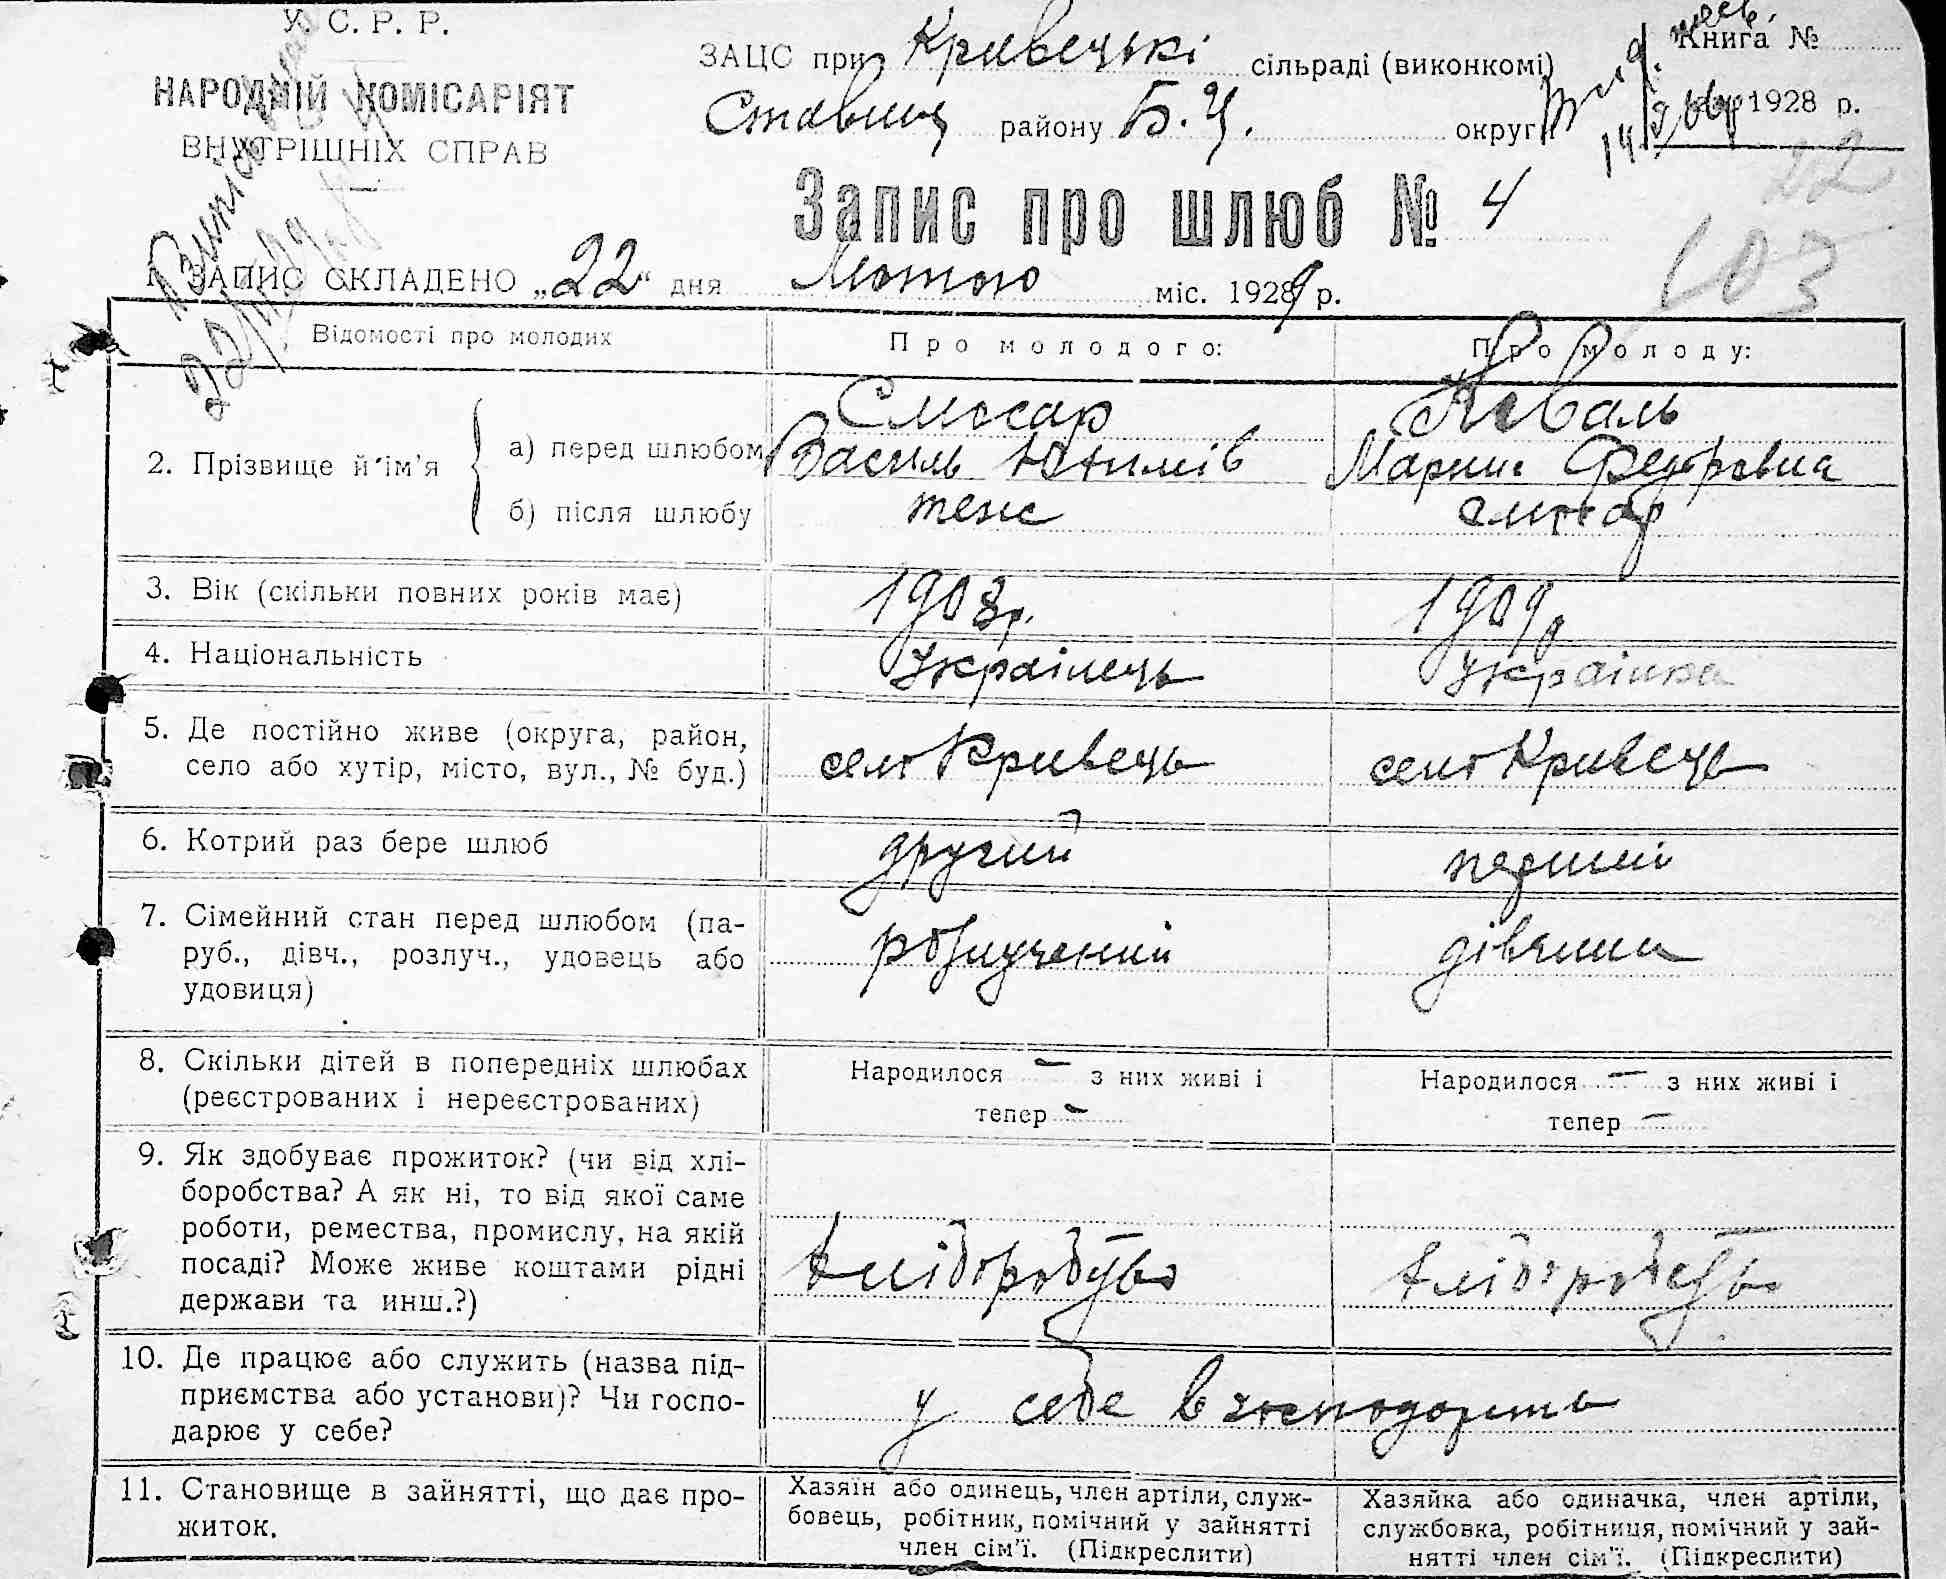 У. С. Р. Р.
НАРОДНІЙ КОМІСАРІЯТ
ВНУТРІШНІХ СПРАВ
ЗАЦС при Кривецькі сільраді (виконкомі)
Ставищ району Б.Ц. округи
Книга №
1928 р.
22
103
Запис про шлюб № 4
1. ЗАПИС СКЛАДЕНО „22“ дня Лютого міс. 1929 р.
Відомості про молодих
Про молодого:
Про молоду:
2. Прізвище й ім'я
а) перед шлюбом
Слюсар
Василь Юхимів
Коваль
Мария Федоровна
б) після шлюбу
теж
Слюсар
3. Вік (скільки повних років має)
1903р.
1909р
4. Національність
Українець
Українка
5. Де постійно живе (округа, район,
село або хутір, місто, вул., № буд.)
село Кривець
село Кривець
6. Котрий раз бере шлюб
другий
перший
7. Сімейний стан перед шлюбом (па-
руб., дівч., розлуч., удовець або
удовиця)
розлучений
дівчина
8. Скільки дітей в попередніх шлюбах
(реєстрованих і нереєстрованих)
Народилося — з них живі і
тепер —
Народилося — з них живі і
тепер —
9. Як здобуває прожиток? (чи від хлі-
боробства? А як ні, то від якої саме
роботи, ремества, промислу, на якій
посаді? Може живе коштами рідні
держави та инш.?)
хліборобство
хліборобство
10. Де працює або служить (назва під-
приємства або установи)? Чи госпо-
дарює у себе?
у себе в господарстві
11. Становище в зайнятті, що дає про-
житок.
Хазяїн або одинець, член артіли, служ-
бовець, робітник, помічний у зайнятті
член сім'ї. (Підкреслити)
Хазяйка або одиначка, член артіли,
службовка, робітниця, помічний у зай-
нятті член сім'ї. (Підкреслити)